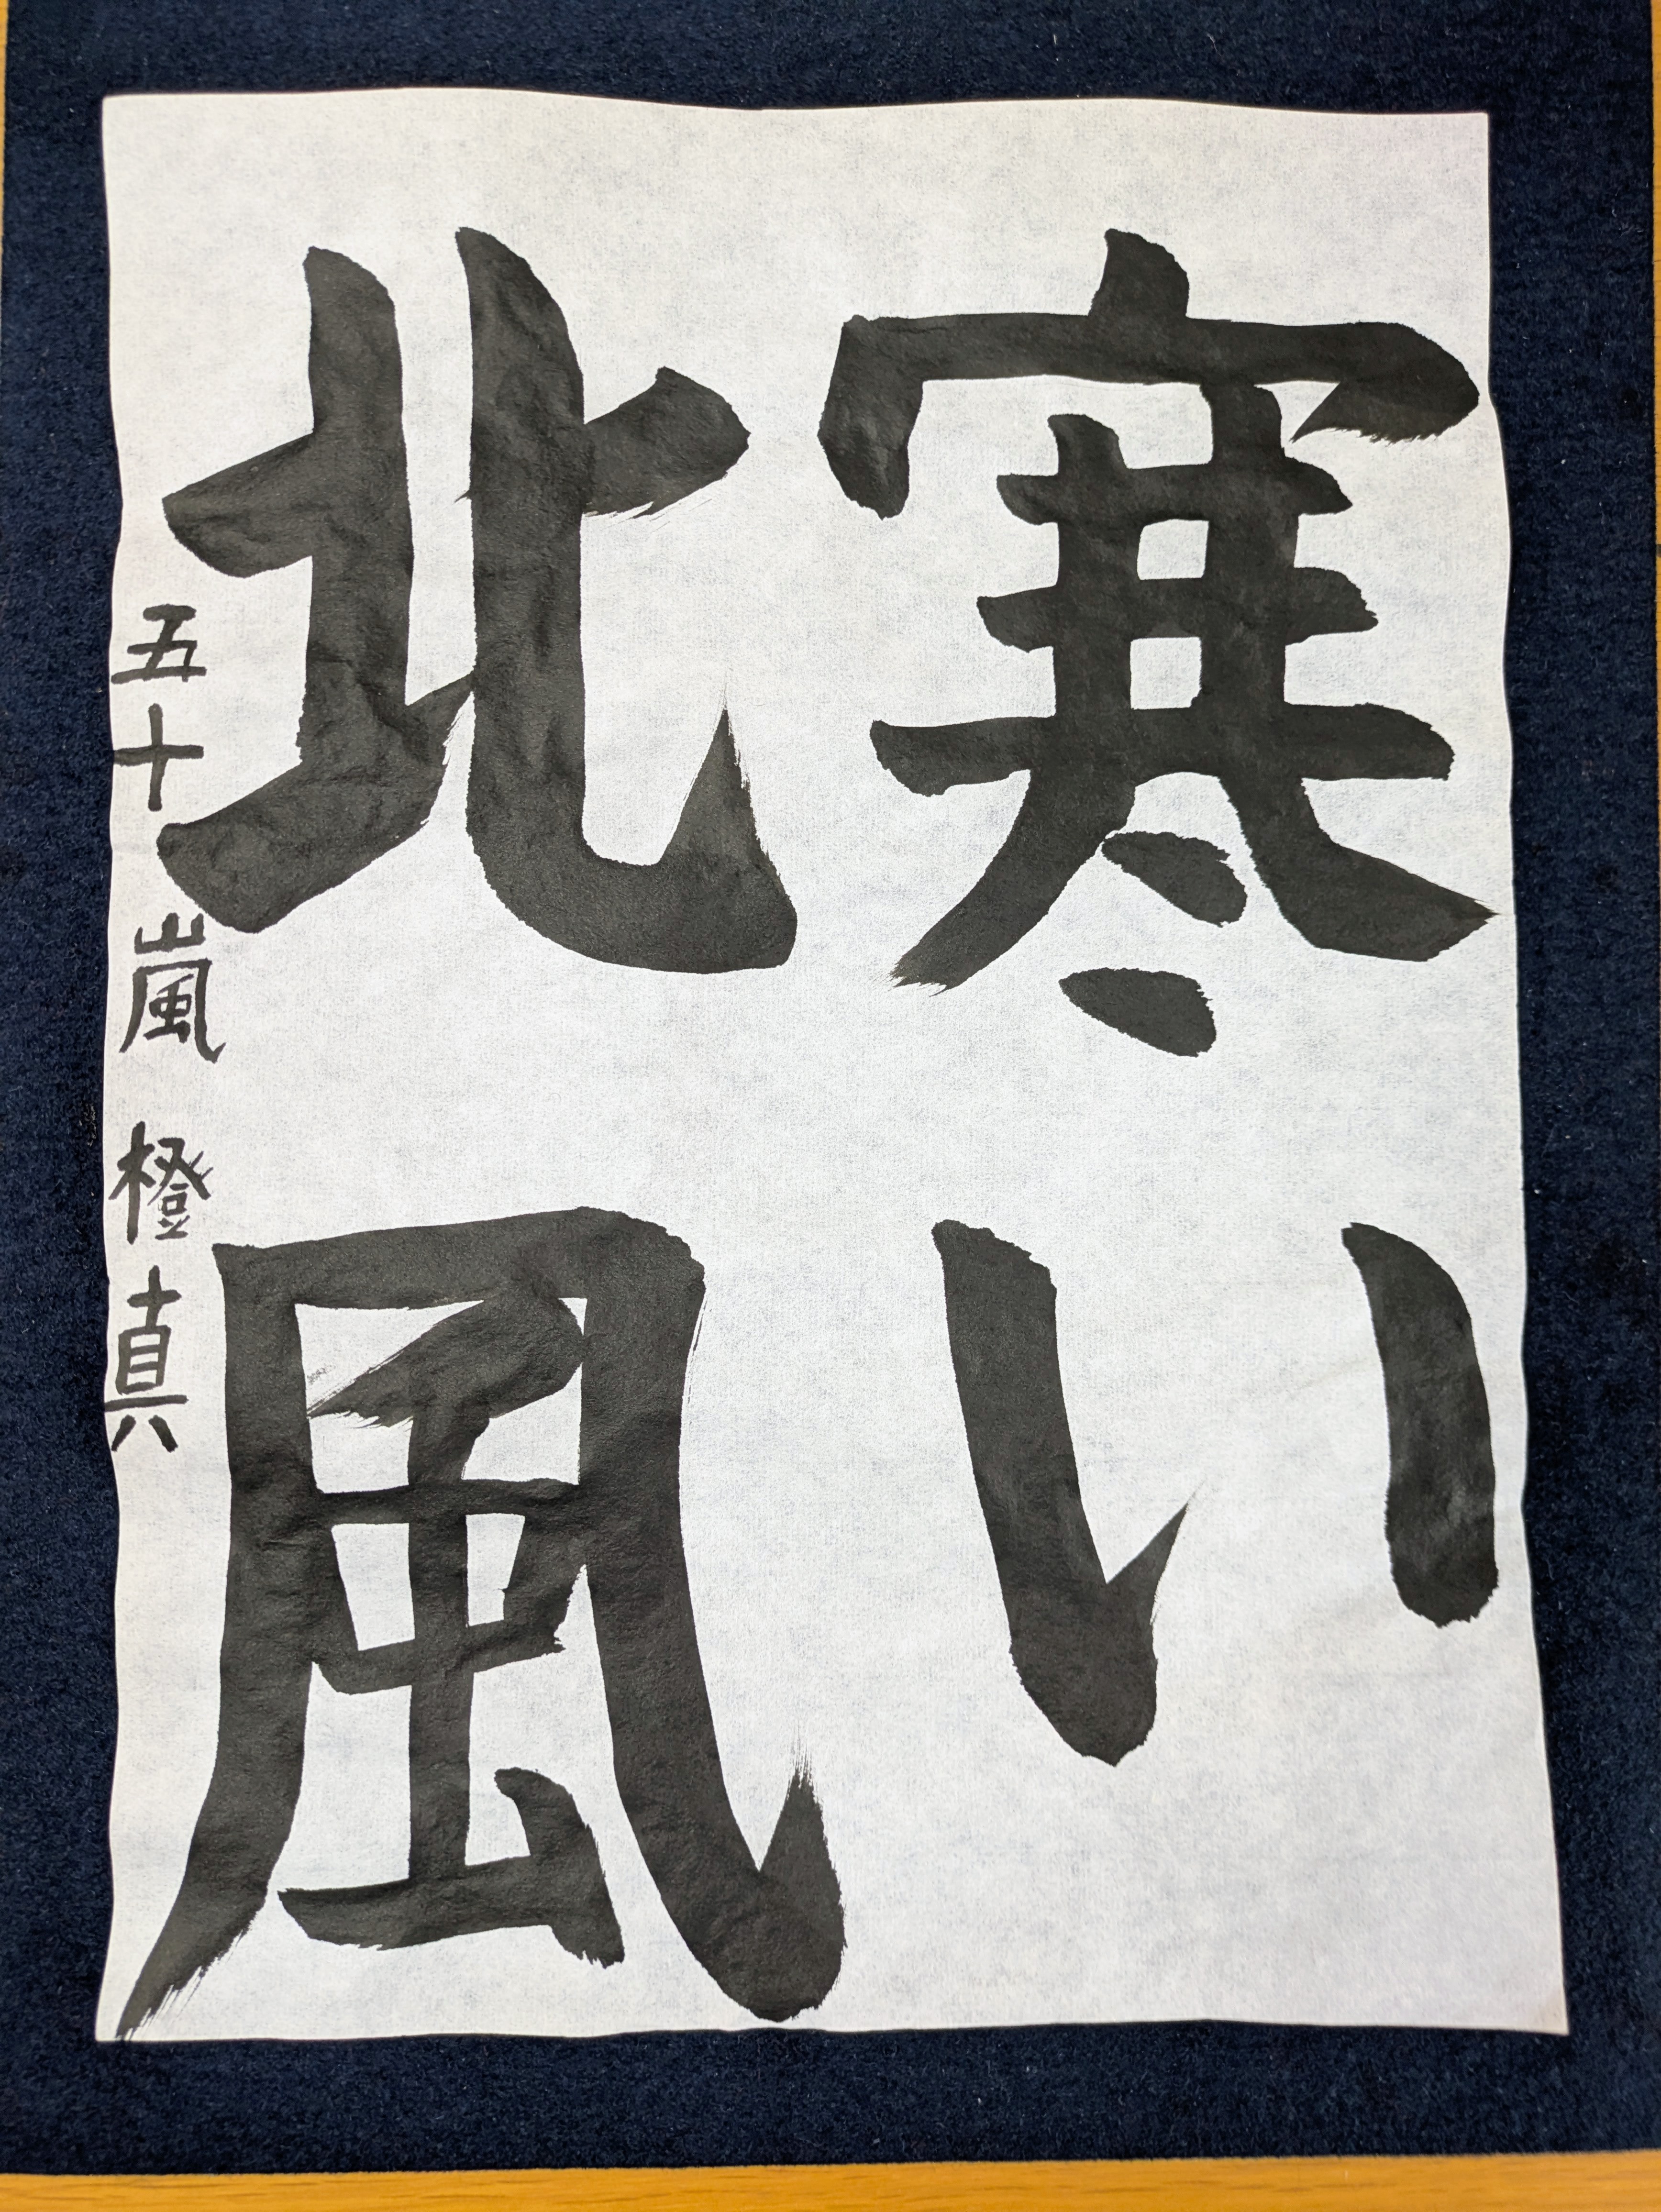 寒い
北風
五十嵐 橙真